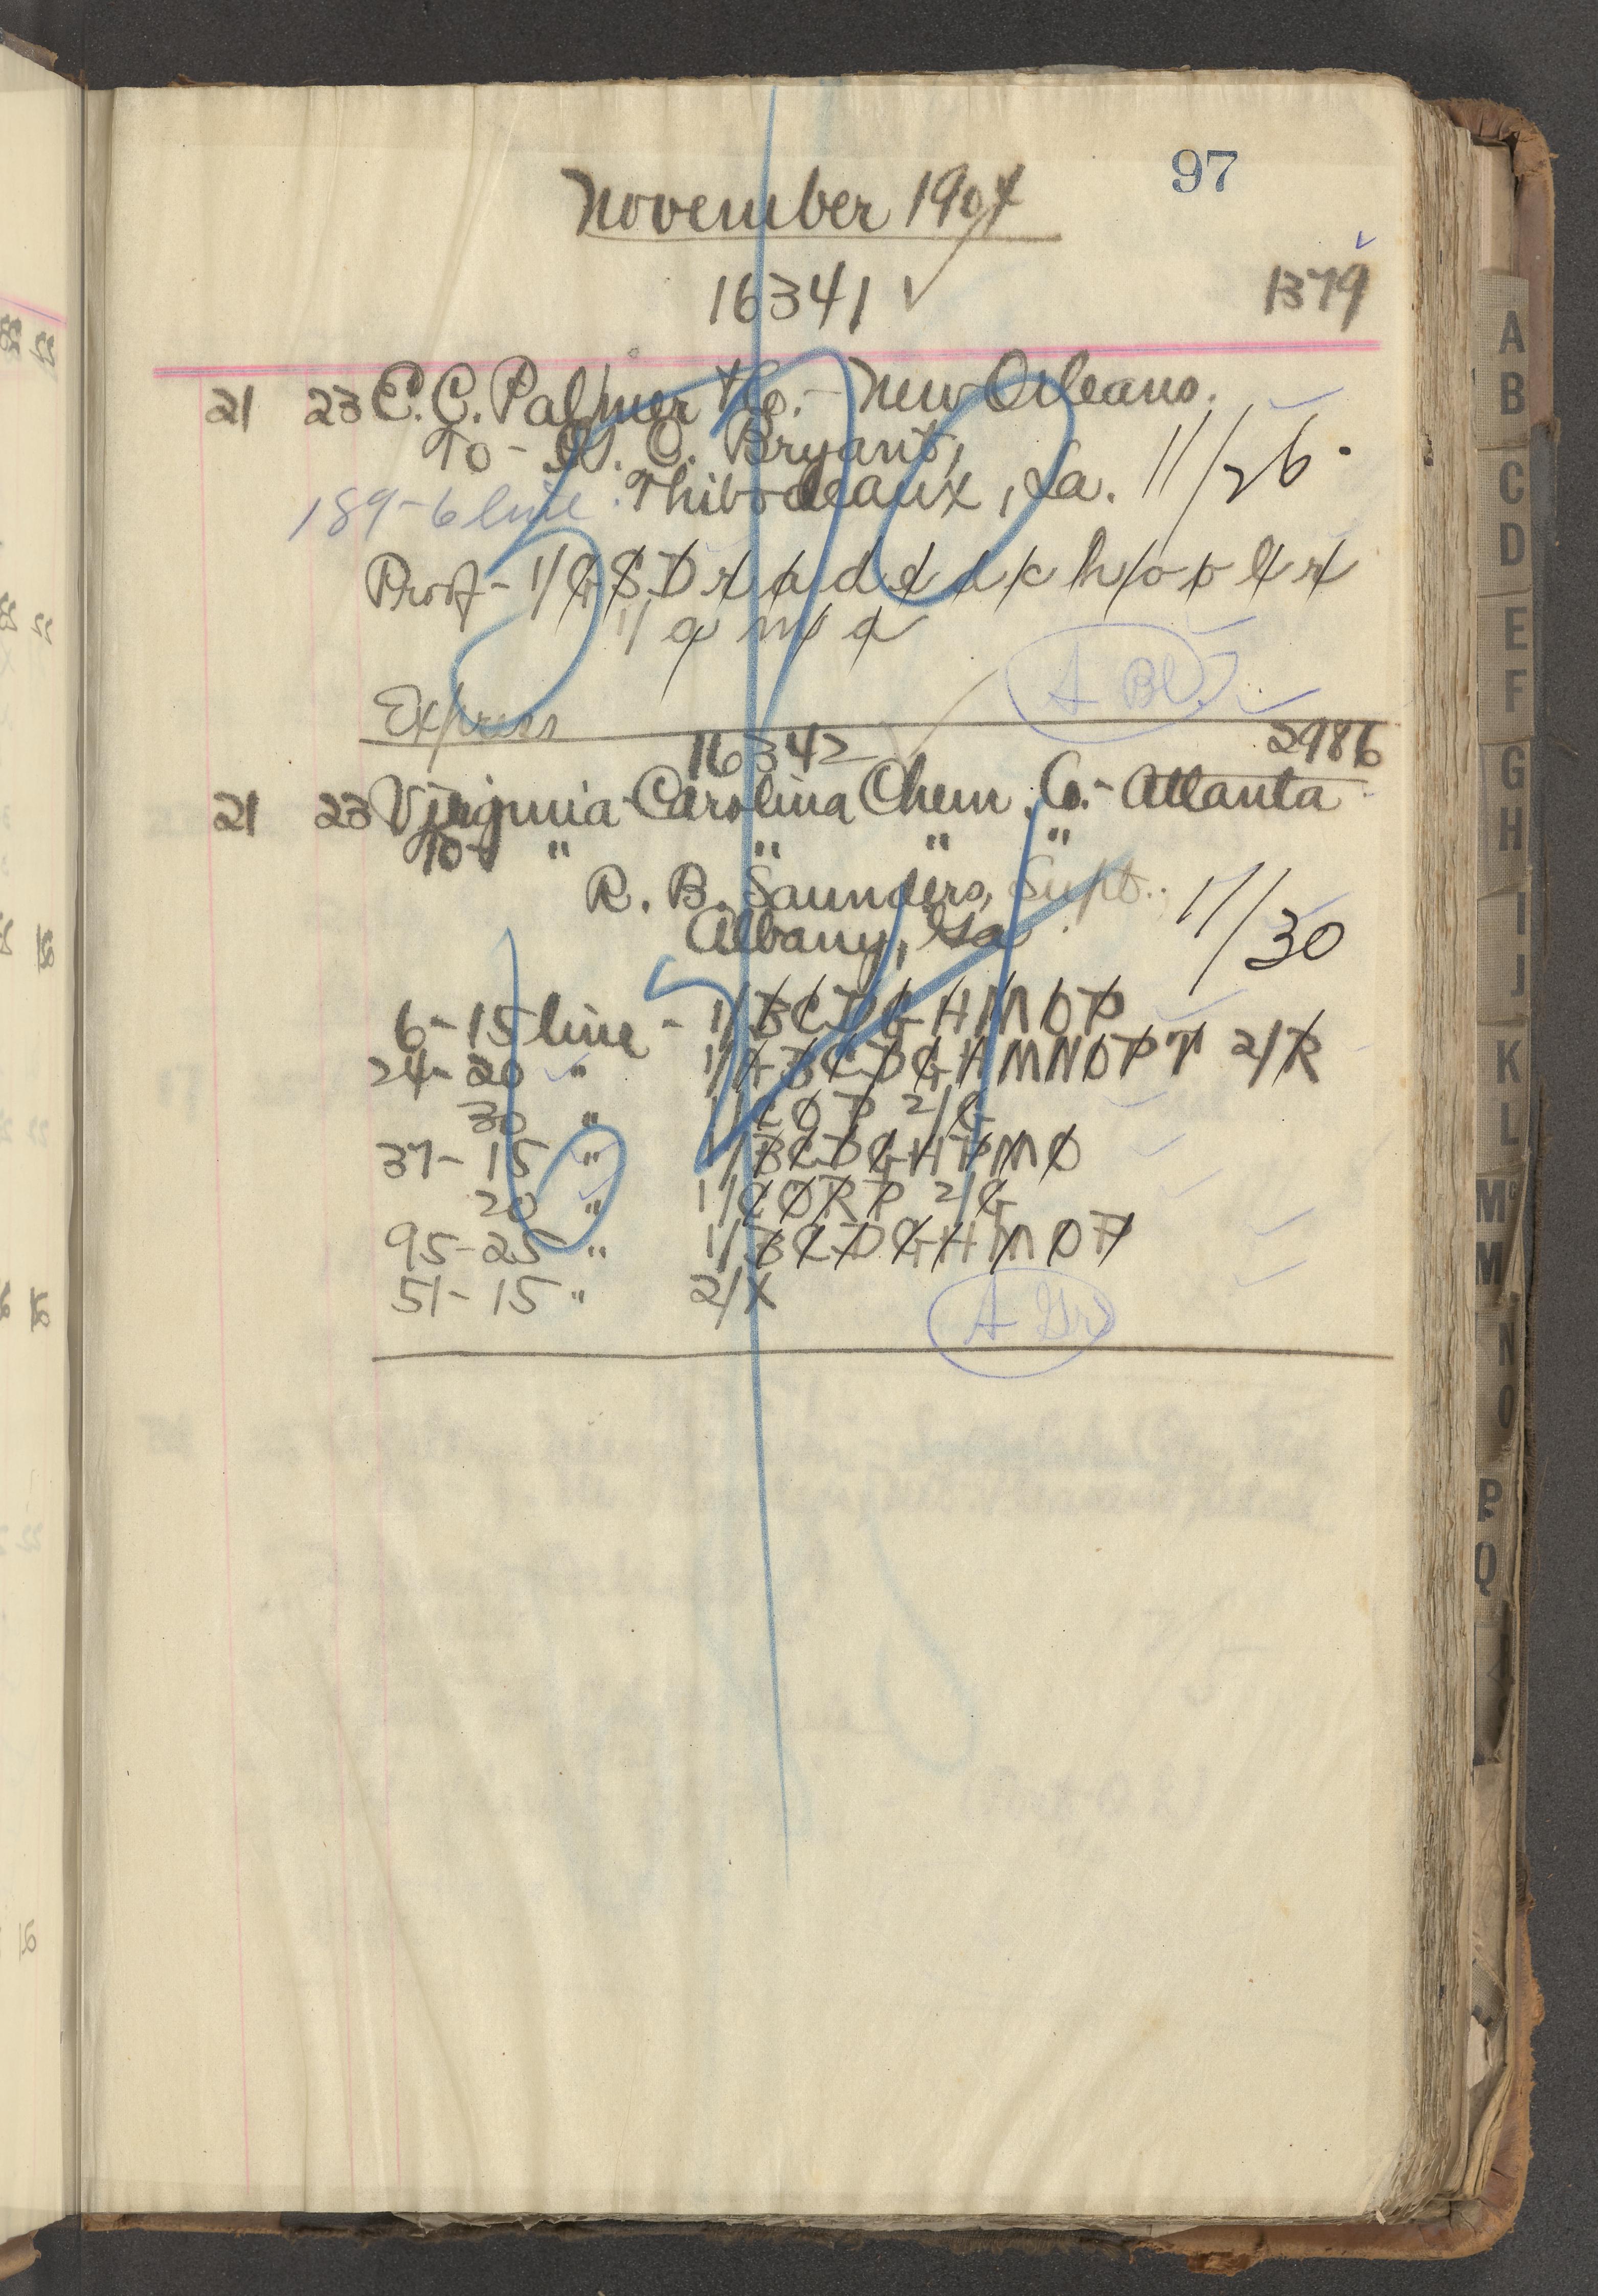 97
November 1904
16341 ✓ 1379
21 23 E. C. Palmer & Co. - New Orleans.
To - O. Bryant,
189-6 line Thibodeaux, La. 11/26.
Proof - 1/ G S D r a d e d c h o o l r
1/ a m a
Express A Bl.
16342 2986
21 23 Virginia-Carolina Chem. Co. - Atlanta
To - " " " "
R. B. Saunders, Supt.
Albany, Ga. 11/30
6-15 line - 1/ B C D G H M O P
24-20 " 1/ A B C D G H M N O P T 2/R
30 " 1/ C O P 2/G
37-15 " 1/ B C D G H P M O
20 " 1/ C O R P 2/G
95-25 " 1/ B C D G H M O P
51-15 " 2/X
A Gr
A
B
C
D
E
F
G
H
I
J
K
L
Mc
M
N
O
P
Q